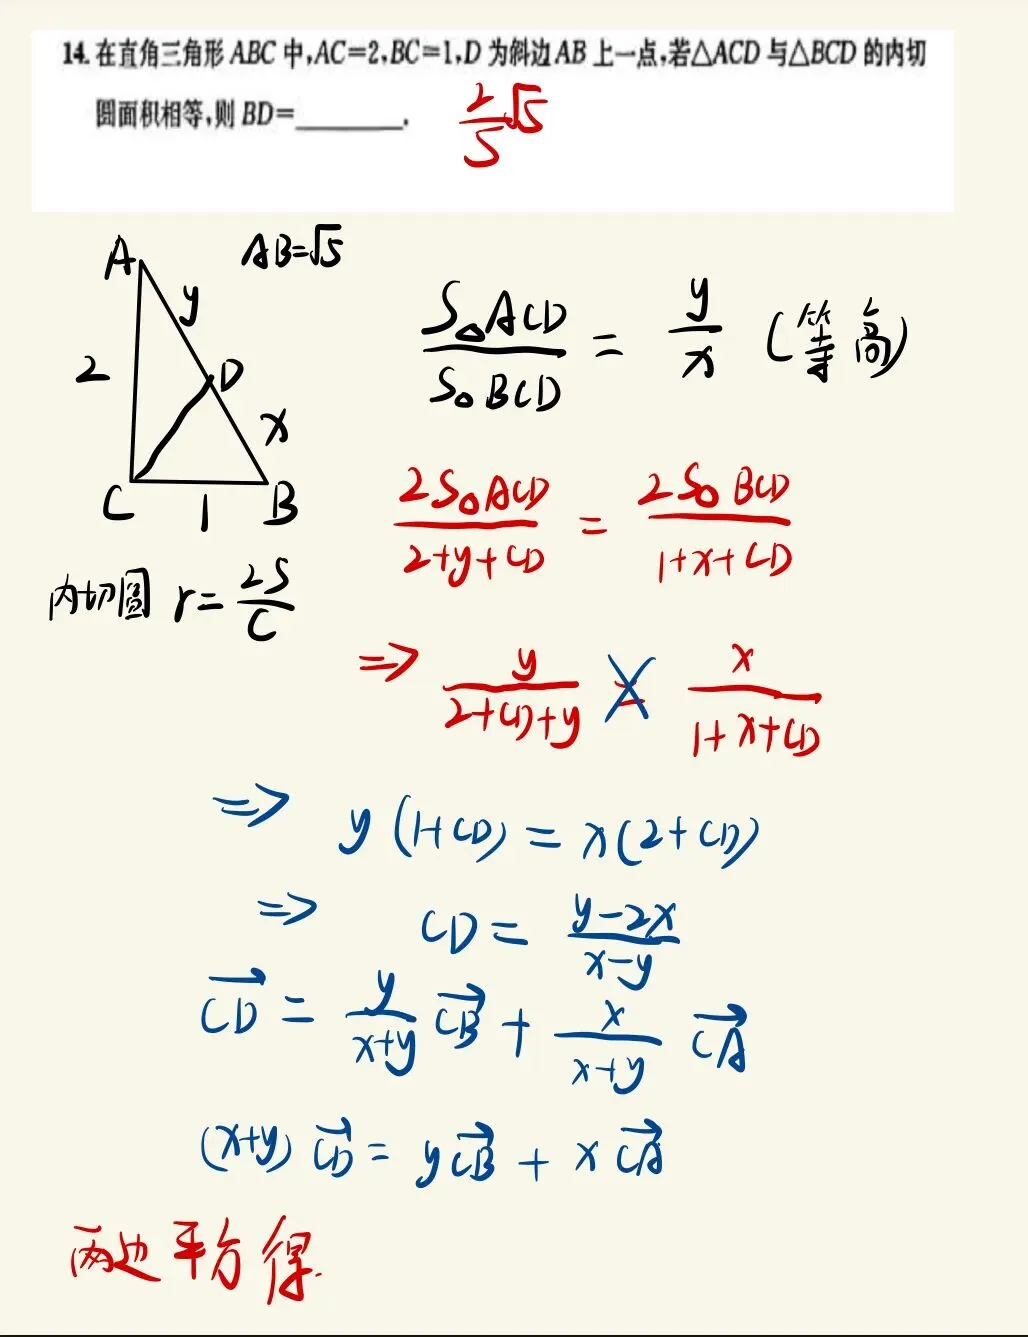 14. 在直角三角形 ABC 中,AC=2,BC=1,D 为斜边 AB 上一点,若△ACD 与△BCD 的内切
圆面积相等,则 BD=________.
2/5 √5
A
AB=√5
y
2
D
x
C
1
B
S△ACD / S△BCD = y/x (等高)
2S△ACD / 2+y+CD = 2S△BCD / 1+x+CD
内切圆 r = 2S/C
=> y / 2+CD+y = x / 1+x+CD
=> y(1+CD) = x(2+CD)
=> CD = y-2x / x-y
→CD = y/x+y →CB + x/x+y →CA
(x+y) →CD = y →CB + x →CA
两边平方得.